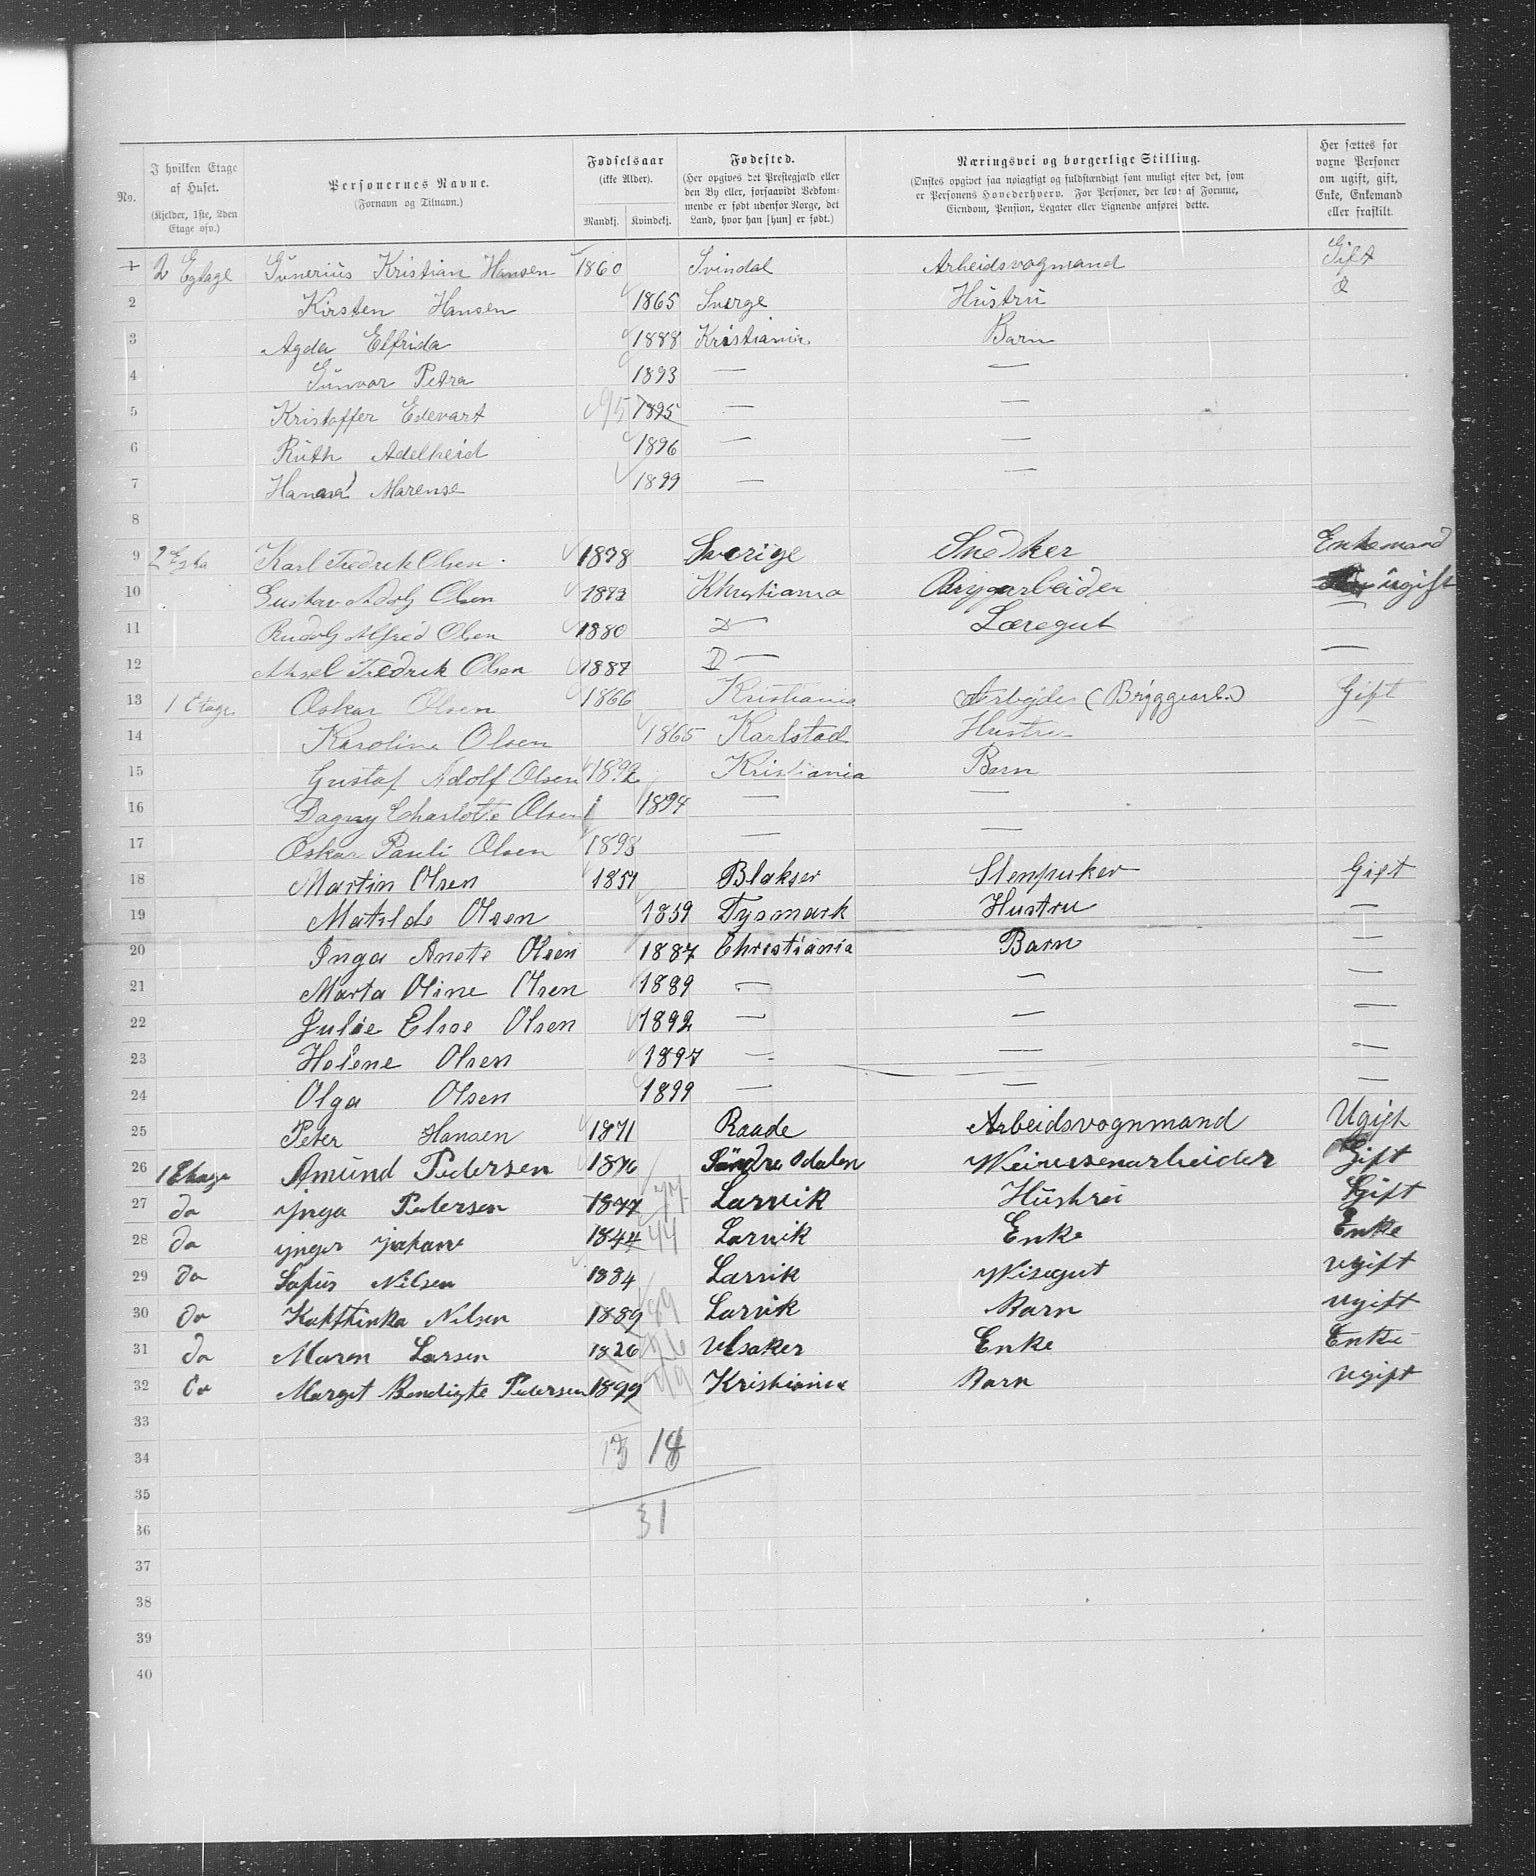 No. I hvilken Etage af Huset. (Kjelder, 1ste, 2den Etage osv.) Personernes Navne. (Fornavn og Tilnavn.) Fødselsaar (ikke Alder). Mandkj. Kvindekj. Fødested. (Her opgives det Prestegjæld eller den By eller, forsaavidt Vedkommende er født udenfor Norge, det Land, hvor han [hun] er født.) Næringsvei og borgerlige Stilling. (Ønskes opgivet saa nøiagtigt og fuldstændigt som muligt efter det, som er Personens Hovederhverv. For Personer, der leve af Formue, Eiendom, Pension, Legater eller Lignende anføres dette. Her sættes for voxne Personer om ugift, gift, Enke, Enkemand eller fraskilt.
1 2 Egtage Gunerius Kristian Hansen 1860 Svindal Arbeidsvogmand Gift
2 Kirsten Hansen 1865 Sverge Hustru
3 Agda Elfrida 1888 Kristiania Barn
4 Gunvor Petra 1893 — —
5 Kristoffer Edevart 95 1895 — —
6 Ruth Adelheid 1896 — —
7 Hanna Marense 1899 — —
8
9 2 Karl Fredrik Olsen 1878 Sverige Snedker Enkemand
10 Gustav Adolf Olsen 1873 Khristiania Brygarbeider ugift
11 Rudolf Alfred Olsen 1880 D— Læregut —
12 Aksel Fredrik Olsen 1887 D— —
13 1 Etage Oskar Olsen 1866 Kristiania Arbejder (Bryggearb.) Gift
14 Karoline Olsen 1865 Karlstad Hustru —
15 Gustaf Adolf Olsen 1892 Kristiania Barn
16 Dagny Charlotte Olsen 1894 — —
17 Oskar Pauli Olsen 1898 — —
18 Martin Olsen 1851 Blakser Stenpuker Gift
19 Matilde Olsen 1859 Tysmark Hustru —
20 Inga Anete Olsen 1887 Christiania Barn —
21 Marta Oline Olsen 1889 — — —
22 Julie Elsoe Olsen 1892 — — —
23 Helene Olsen 1897 — — —
24 Olga Olsen 1899 — — —
25 Peter Hansen 1871 Raade Arbeidsvognmand Ugift
26 1 Etage Amund Pedersen 1876 Søndre Odalen Meieriesenarbeider Gift
27 do Ynga Pedersen 1877 77 Larvik Hustru Gift
28 do ynger johane 1844 44 Larvik Enke Enke
29 do Sofus Nilsen 1884 Larvik Visegut ugift
30 do Kathtinka Nilsen 1889 89 Larvik Barn ugift
31 do Maren Larsen 1826 26 Ulsaker Enke Enke
32 do Margit Bendigte Pedersen 1899 99 Kristiania Barn ugift
33
34 13 18
35
36 31
37
38
39
40